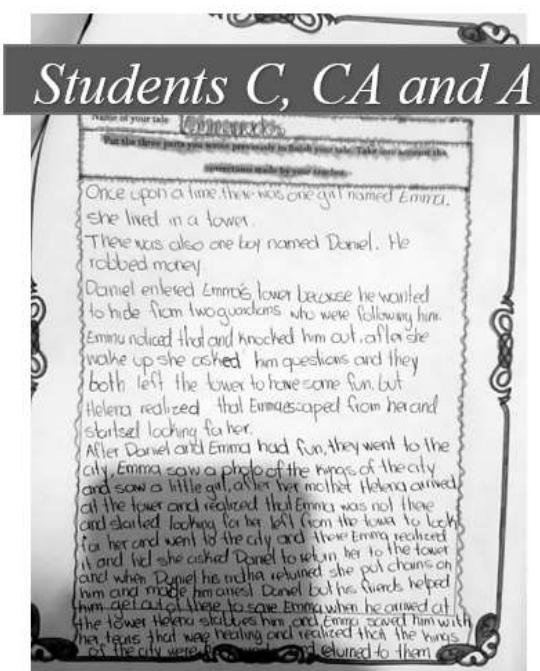 Students C, CA and A
Name of your tale
Put the three parts you wrote previously to finish your tale. Take into account the
corrections made by your teacher.
Once upon a time, there was one girl named Emma,
she lived in a tower.
There was also one boy named Daniel. He
robbed money.
Daniel entered Emma's tower because he wanted
to hide from two guardians who were following him.
Emma noticed that and knocked him out, after she
wake up she asked him questions and they
both left the tower to have some fun, but
Helena realized that Emma escaped from her and
startsed looking for her.
After Daniel and Emma had fun, they went to the
city, Emma saw a photo of the kings of the city
and saw a little girl, after her mother Helena arrived
at the tower and realized that Emma was not there
and started looking for her left from the tower to look
for her and went to the city and there Emma realized
it and hid she asked Daniel to return her to the tower
and when Daniel his mother returned she put chains on
him and made him arrest Daniel but his friends helped
him get out of there to save Emma when he arrived at
the tower Helena stabbes him, and Emma saved him with
her tears that were healing and realized that the kings
of the city were and returned to them